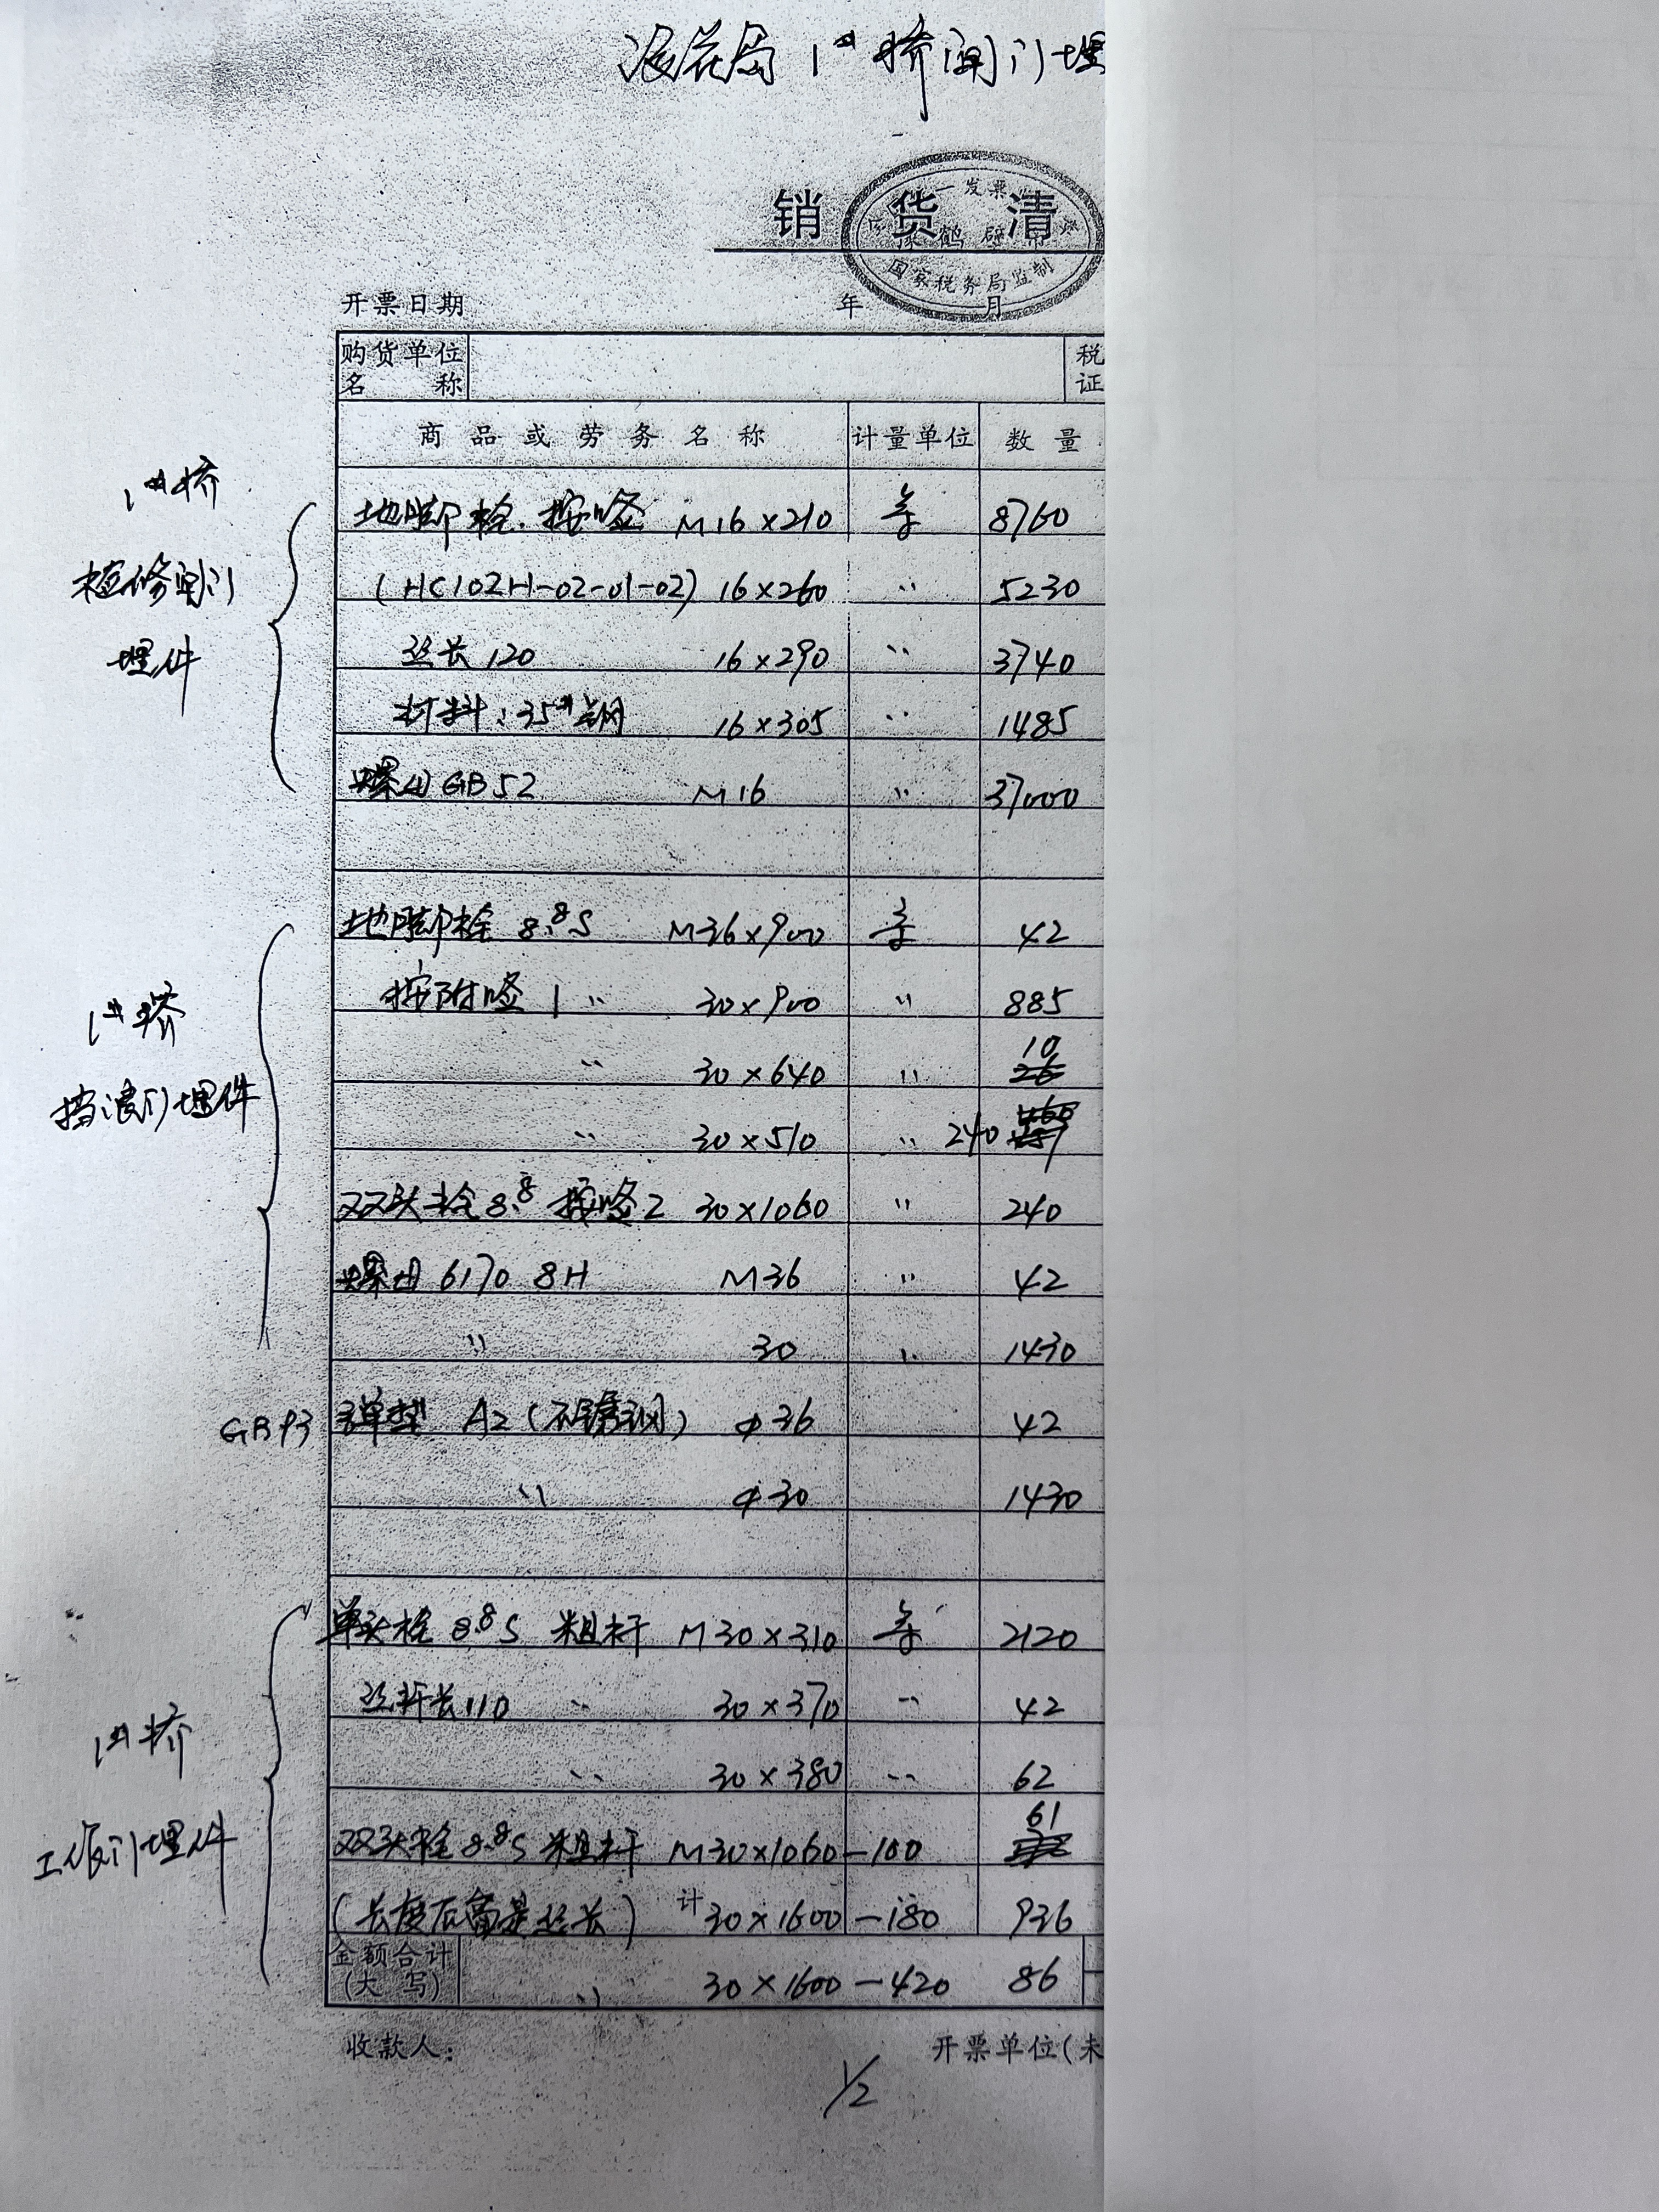 1# 桥闸门埋
销 货 清
一发票
鹤壁市
国家税务局监制
开票日期 年 月
购货单位名称 税证
商品或劳务名称 计量单位 数量
1#桥
检修闸门
埋件
地脚栓.按图 M16×210 套 8760
(HC102H-02-01-02) 16×260 〃 5230
丝长120 16×290 〃 3740
材料:35#钢 16×305 〃 1485
螺母GB52 M16 〃 37000
1#桥
挡浪门埋件
地脚栓 8.8S M36×900 套 42
按附图1 〃 30×900 〃 885
〃 30×640 〃 10
〃 30×510 〃 240
双头栓8.8 按图2 30×1060 〃 240
螺母 6170 8H M36 〃 42
〃 30 〃 1430
GB93 弹垫 A2(不锈钢) φ36 42
〃 φ30 1430
1#桥
工作门埋件
单头栓 8.8S 粗杆 M30×310 套 2120
丝杆长110 〃 30×370 〃 42
〃 30×380 〃 62
双头栓8.8S 粗杆 M30×1060-100 61
(长度后面是丝长) 计 30×1600-180 936
金额合计(大 写) 〃 30×1600-420 86
收款人: 开票单位(未
1/2